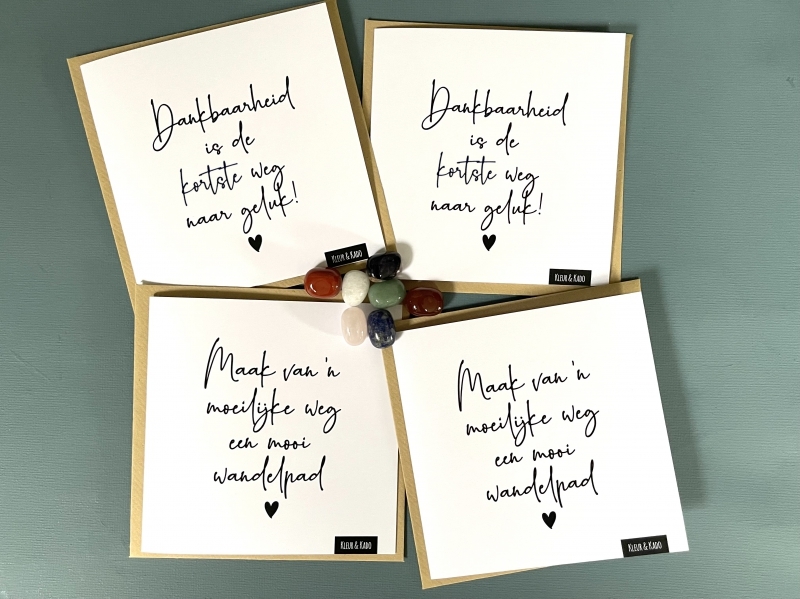 Dankbaarheid
is de
kortste weg
naar geluk!
KLEUR & KADO
Dankbaarheid
is de
kortste weg
naar geluk!
KLEUR & KADO
Maak van 'n
moeilijke weg
een mooi
wandelpad
KLEUR & KADO
Maak van 'n
moeilijke weg
een mooi
wandelpad
KLEUR & KADO